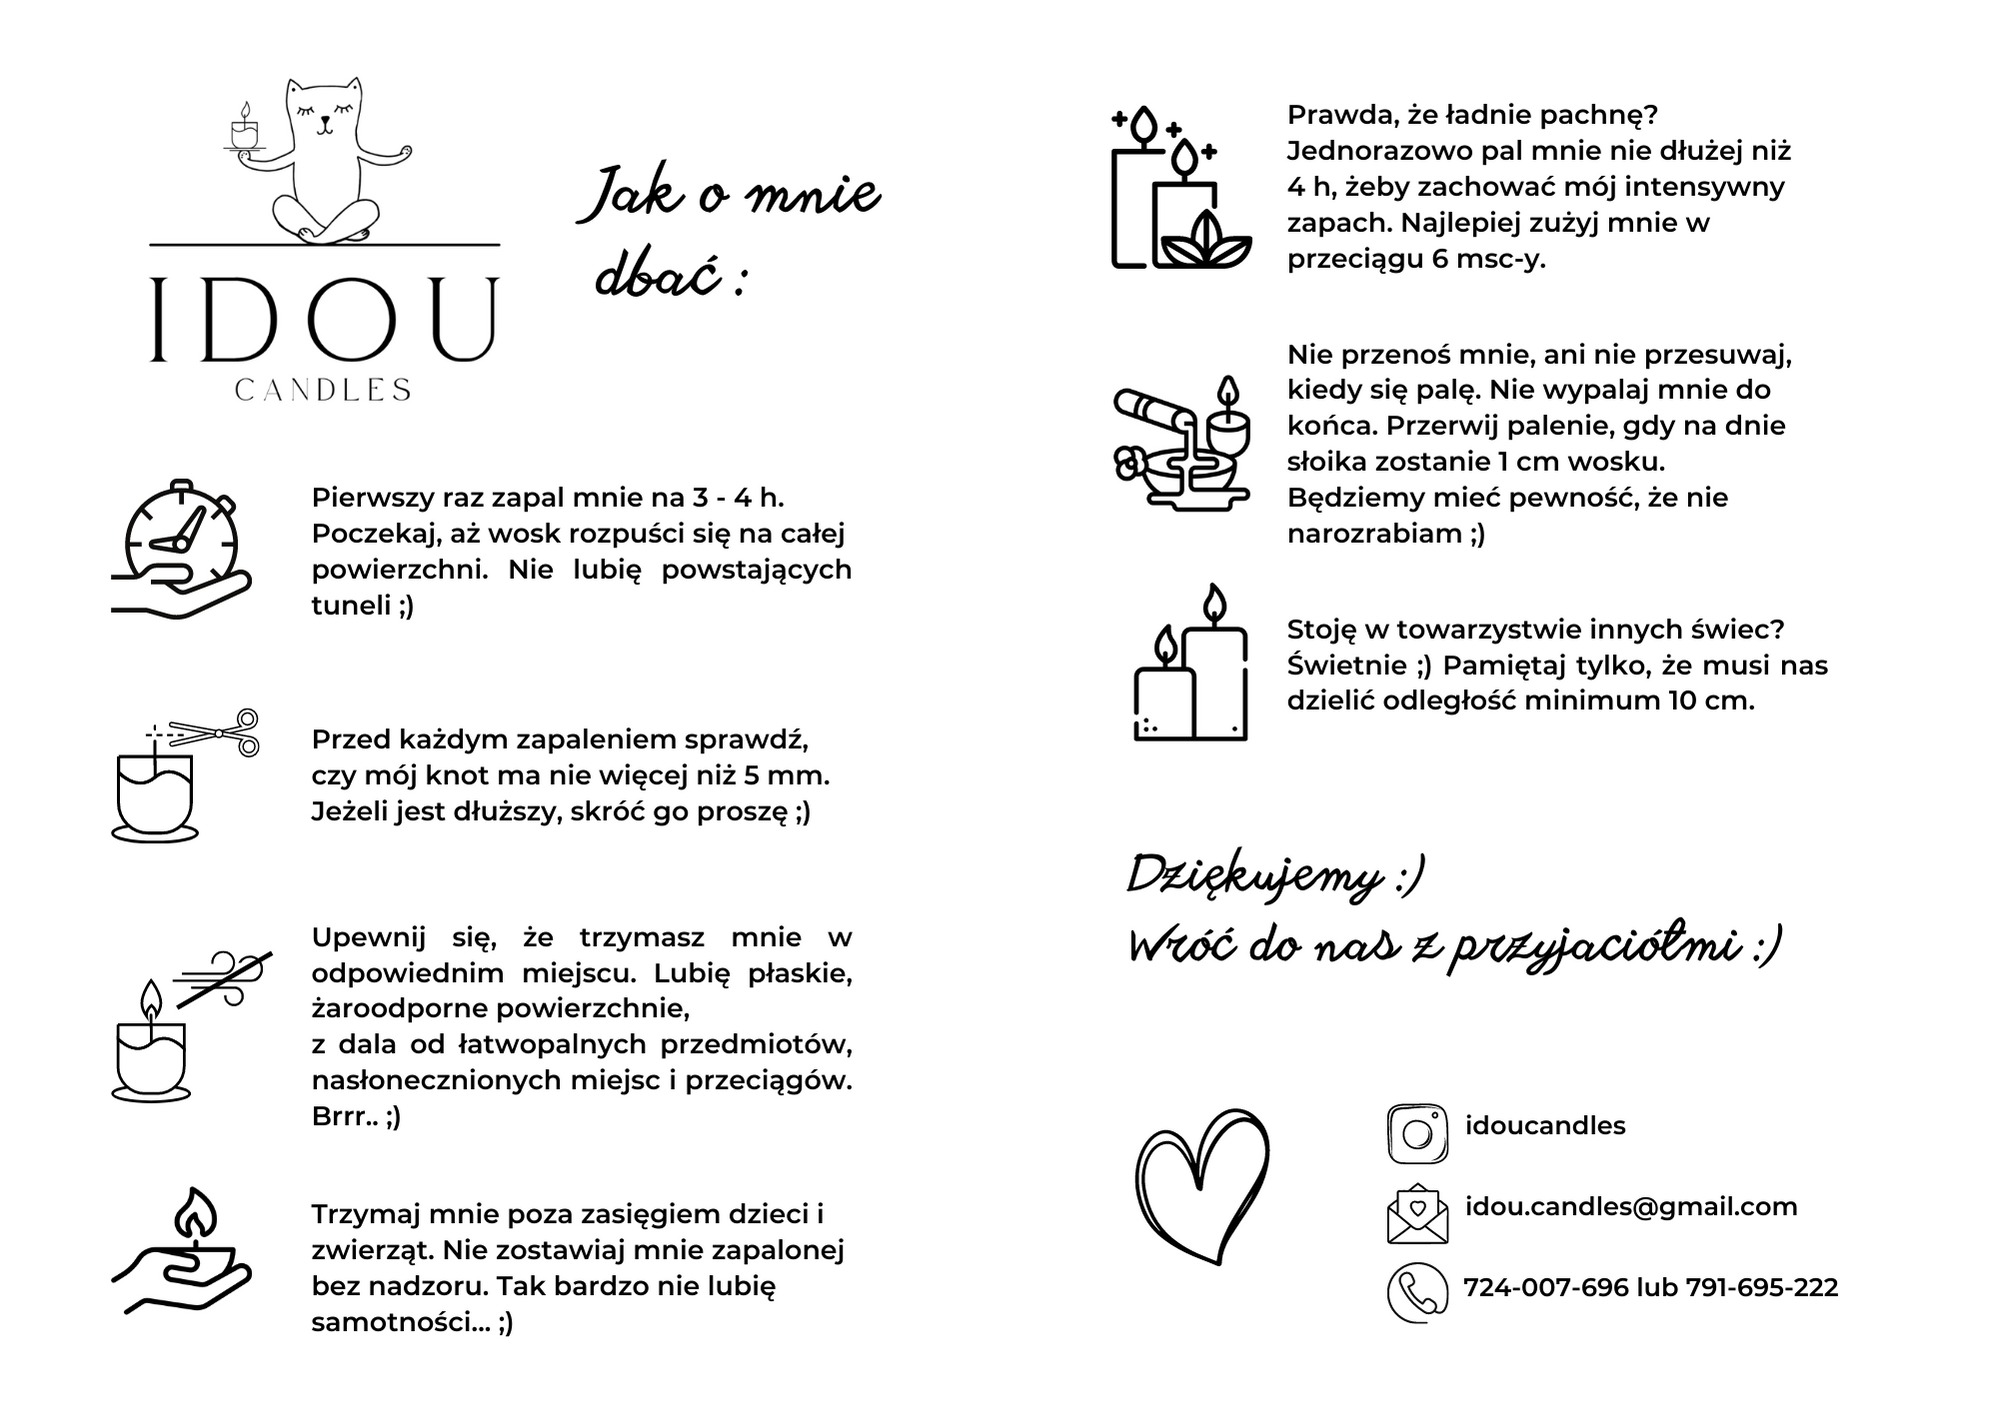 IDOU
CANDLES
Jak o mnie
dbać :
Pierwszy raz zapal mnie na 3 - 4 h.
Poczekaj, aż wosk rozpuści się na całej
powierzchni. Nie lubię powstających
tuneli ;)
Przed każdym zapaleniem sprawdź,
czy mój knot ma nie więcej niż 5 mm.
Jeżeli jest dłuższy, skróć go proszę ;)
Upewnij się, że trzymasz mnie w
odpowiednim miejscu. Lubię płaskie,
żaroodporne powierzchnie,
z dala od łatwopalnych przedmiotów,
nasłonecznionych miejsc i przeciągów.
Brrr.. ;)
Trzymaj mnie poza zasięgiem dzieci i
zwierząt. Nie zostawiaj mnie zapalonej
bez nadzoru. Tak bardzo nie lubię
samotności... ;)
Prawda, że ładnie pachnę?
Jednorazowo pal mnie nie dłużej niż
4 h, żeby zachować mój intensywny
zapach. Najlepiej zużyj mnie w
przeciągu 6 msc-y.
Nie przenoś mnie, ani nie przesuwaj,
kiedy się palę. Nie wypalaj mnie do
końca. Przerwij palenie, gdy na dnie
słoika zostanie 1 cm wosku.
Będziemy mieć pewność, że nie
narozrabiam ;)
Stoję w towarzystwie innych świec?
Świetnie ;) Pamiętaj tylko, że musi nas
dzielić odległość minimum 10 cm.
Dziękujemy :)
Wróć do nas z przyjaciółmi :)
idoucandles
idou.candles@gmail.com
724-007-696 lub 791-695-222